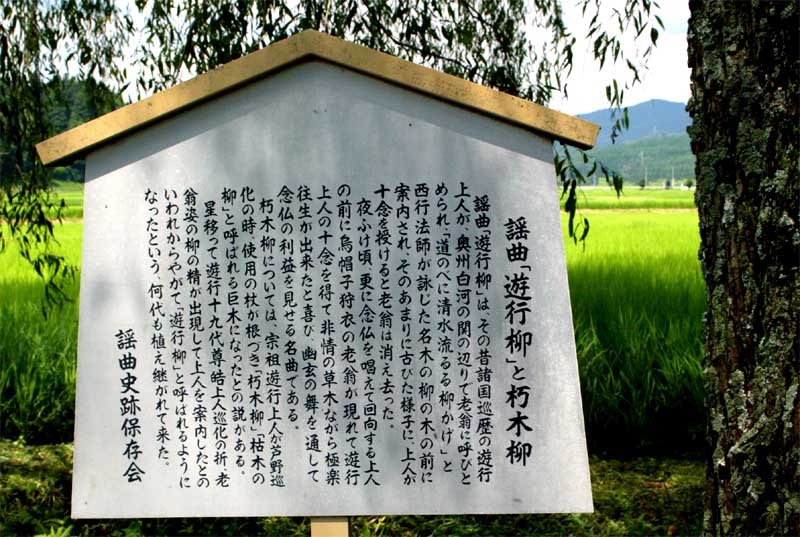 謡曲「遊行柳」と朽木柳
謡曲「遊行柳」は、その昔諸国巡歴の遊行
上人が、奥州白河の関の辺りで老翁に呼びと
められ、「道のべに清水流るる柳かげ」と
西行法師が詠じた名木の柳の木の前に
案内され、そのあまりに古びた様子に、上人が
十念を授けると老翁は消え去った。
夜ふけ頃、更に念仏を唱えて回向する上人
の前に烏帽子狩衣の老翁が現れて遊行
上人の十念を得て非情の草木ながら極楽
往生が出来たと喜び、幽玄の舞を通して
念仏の利益を見せる名曲である。
朽木柳については、宗祖遊行上人が芦野巡
化の時、使用の杖が根づき「朽木柳」「枯木の
柳」と呼ばれる巨木になったとの説がある。
星移って遊行十九代尊皓上人巡化の折、老
翁姿の柳の精が出現して上人を案内したとの
いわれからやがて、「遊行柳」と呼ばれるように
なったという、何代も植え継がれて来た。
謡曲史跡保存会